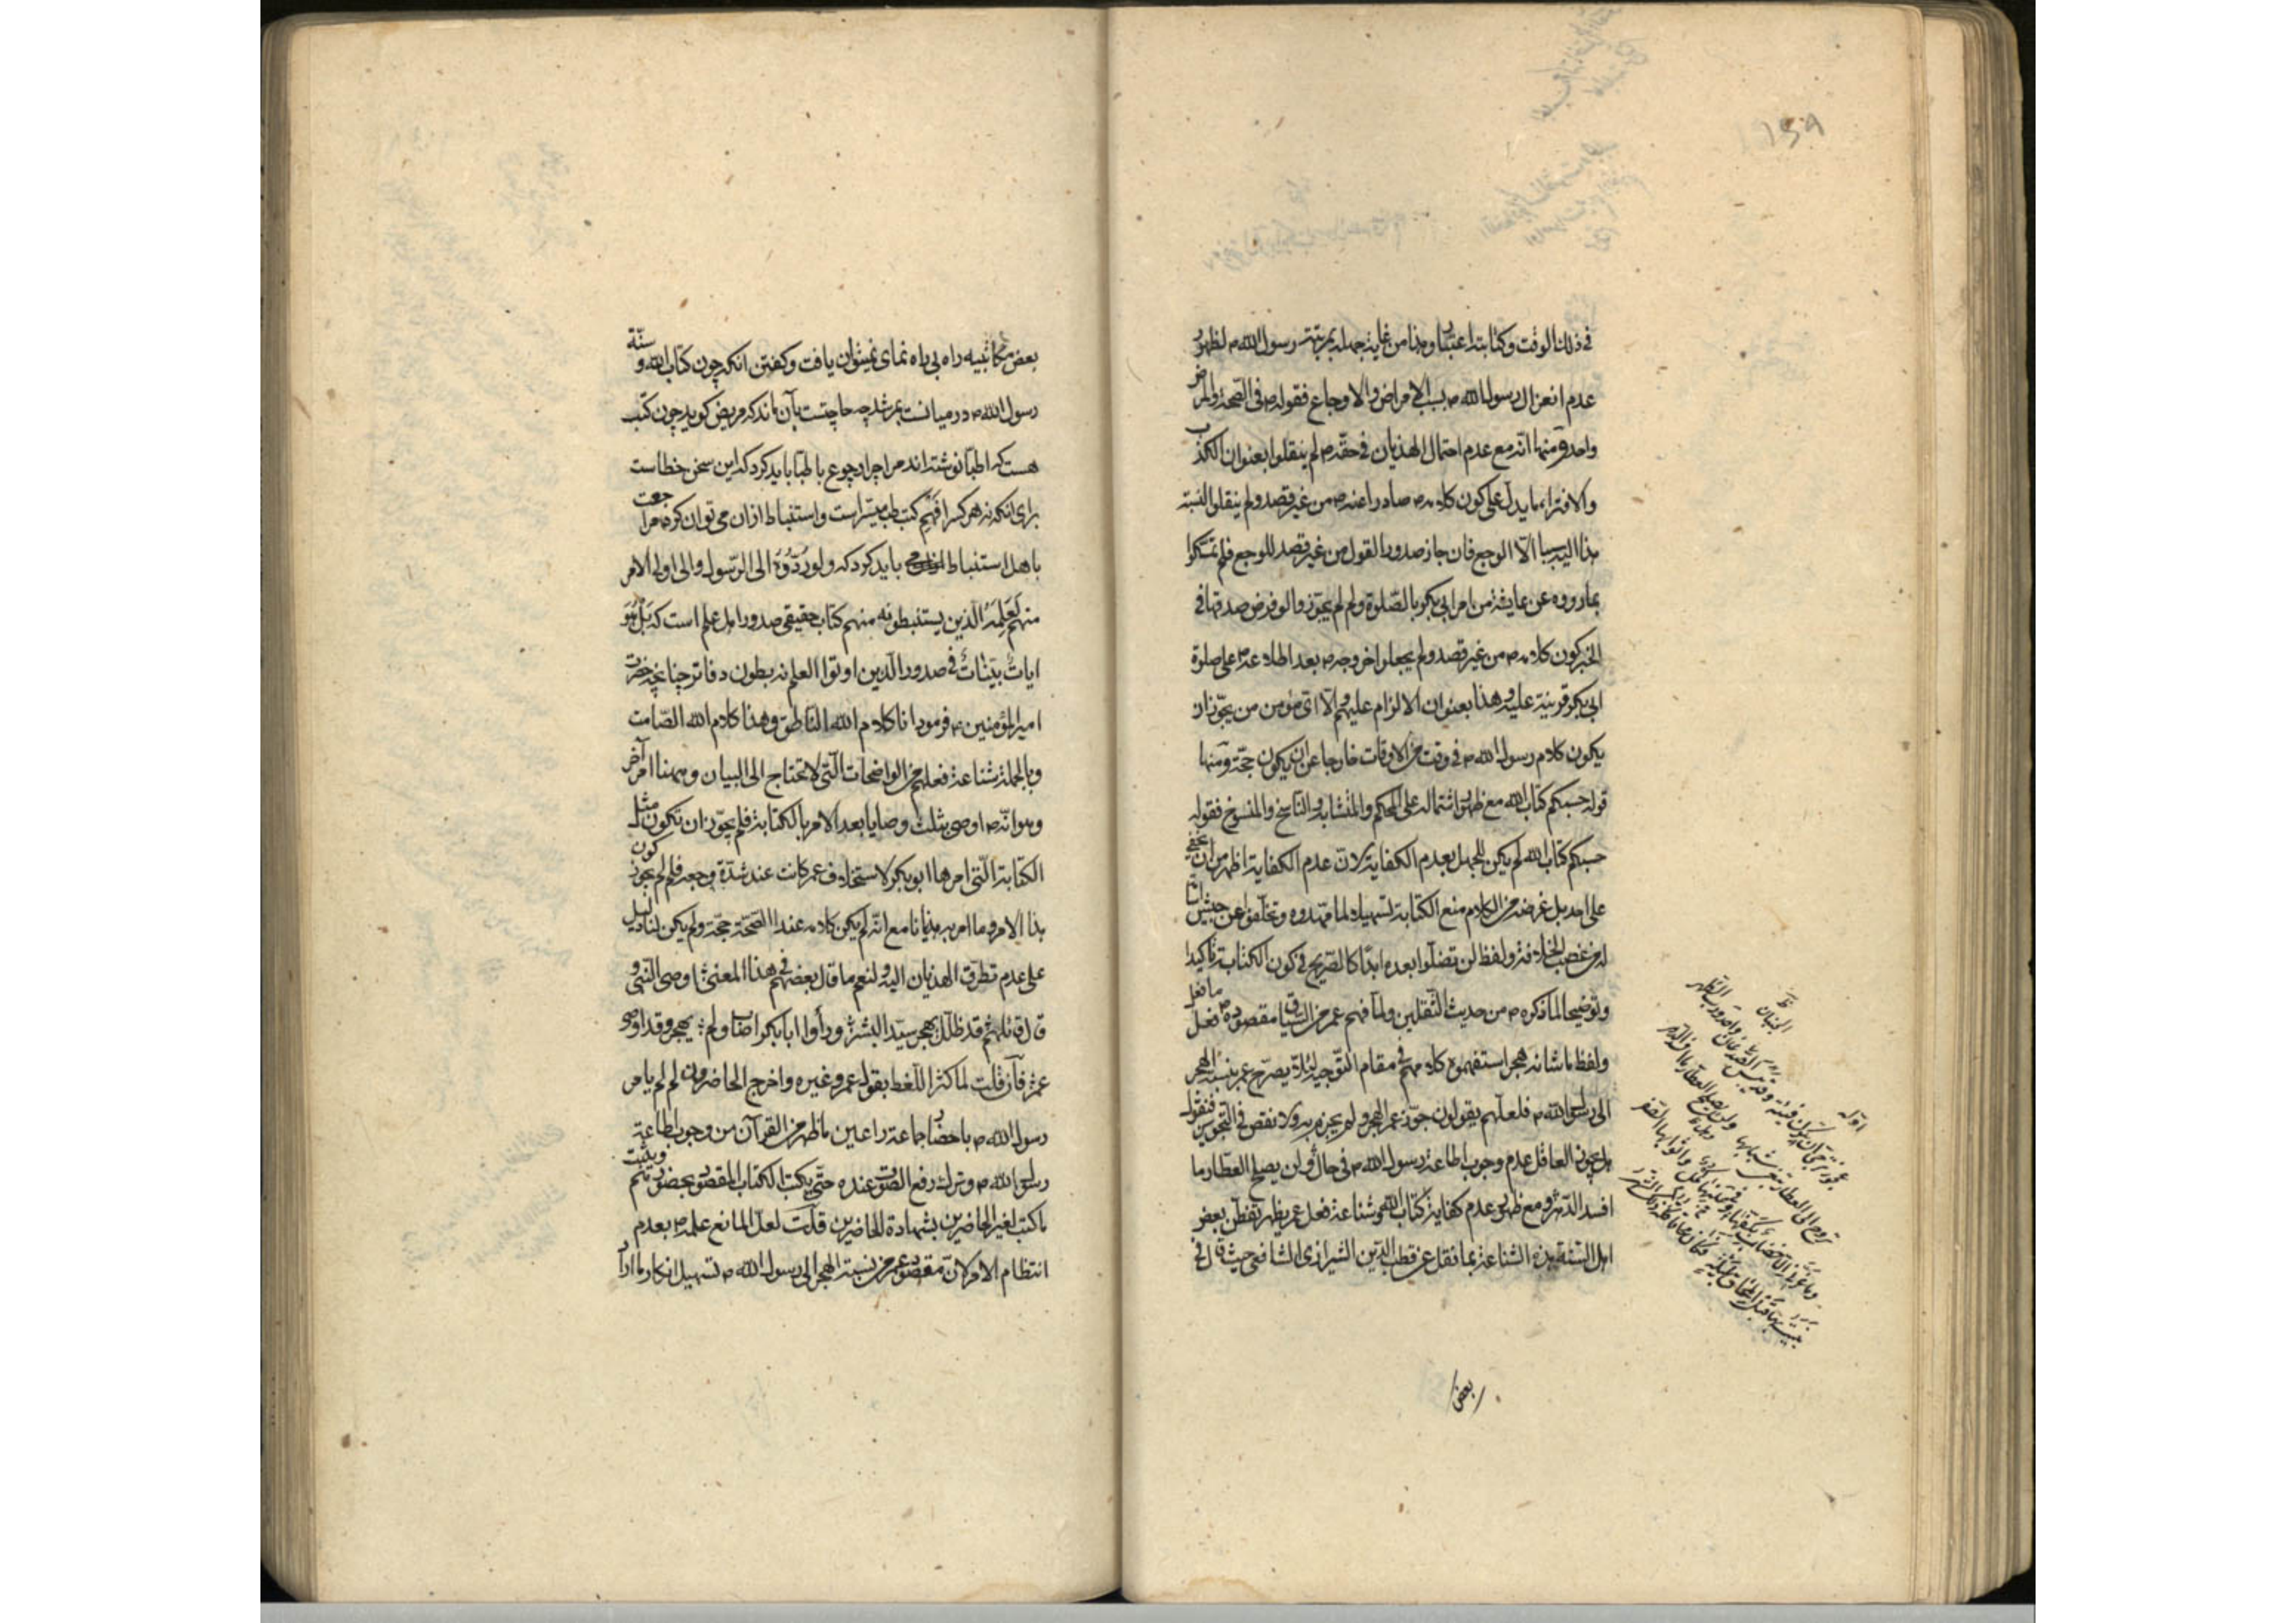 في ذلك الوقت وكتابته اعتبار وهذا من غاية جهله بمرتبة رسول الله ص لظهور
عدم انعزال رسول الله ص بسبب الامراض والاوجاع فقوله ص في الصحة والمرض
واحد ومنها انه مع عدم احتمال الهذيان في حقه ص لم ينقلوا بعنوان الكذب
والافتراء ما يدل على كون كلامه ص صادرا عنه ص من غير قصد ولم ينقلوا لنسبة
هذا اليه سببا الا الوجع فان جاز صدور القول من غير قصد للوجع فلم تمسكوا
بما رووه عن عايشة من امر ابي بكر بالصلوة ولم لم يجوزوا لو فرض صدقها في
الخبر كون كلامه ص من غير قصد ولم يجعلوا خروجه ص بعد اطلاعه ص على صلوة
ابي بكر قرينة عليه وهذا بعنوان الالزام عليهم والا اي مؤمن من يجوز ان
يكون كلام رسول الله ص في وقت من الاوقات خارجا عن ان يكون حجة ومنها
قوله حسبكم كتاب الله مع ظهور اشتماله على المحكم والمتشابه والناسخ والمنسوخ فقوله
حسبكم كتاب الله لم يكن للجهل بعدم الكفاية لان عدم الكفاية اظهر من ان يخفى
على احد بل غرضه من الكلام منع الكتابة تسهيلا لما مهدوه وتخلفوا عن جيش اسامة
له من غصب الخلافة ولفظ لن تضلوا بعده ابدا كالصريح في كون الكتابة تاكيدا
وتوضيحا لما ذكره ص من حديث الثقلين ولما فهم عمر من السياق مقصوده ص فعل ما فعل
ولفظ ما شانه هجر استفهموه كلامهم في مقام التوجيه لئلا يصرح عمر بنسبة الهجر
الى رسول الله ص فلعلهم يقولون جوز عمر الهجر ولم يجزم به ولا نقص في التجويز فنقول
هل يجوز العاقل عدم وجوب اطاعة رسول الله ص في حال ولن يصلح العطار ما
افسد الدهر ومع ظهور عدم كفاية كتاب الله وشناعة فعل عمر يظهر تفطن بعض
اهل السنة بهذه الشناعة بما نقل عن قطب الدين الشيرازي الشافعي حيث قال في
بعض
بعض مكاتيبه راه بي راه نماي نميتوان يافت وكفتن انكه چون كتاب الله و سنة
رسول الله ص در ميانست بمرشد چه حاجتست بآن ماند كه مريض كويد چون كتب
هست كه اطبا نوشته اند مرا چرا رجوع باطبا بايد كرد كه اين سخن خطاست
براى انكه نه هر كس را فهم كتب طب ميسر است واستنباط ازان مى توان كرد مراجعت
باهل استنباط بايد كرد كه ولو ردوه الى الرسول والى اولي الامر
منهم لعلمه الذين يستنبطونه منهم كتاب حقيقي صدور اهل علم است كه بل هو
ايات بينات في صدور الذين اوتوا العلم نه بطون دفاتر چنانچه حضرت
امير المؤمنين ع فرمود انا كلام الله الناطق وهذا كلام الله الصامت
وبالجملة شناعة فعلهم من الواضحات التي لا تحتاج الى البيان وههنا امر آخر
وهو انه ص اوصى بثلث وصايا بعد الامر بالكتابة فلم يجوز ان تكون مثل
الكتابة التي امر ها ابو بكر لاستخلاف عمر كانت عند شدة وجعه فلم لم يجوز كون
هذا الامر وما امر به هذيانا مع انه لم يكن كلامه عند الصحة حجة ولم يكن لنا دليل
على عدم تطرق الهذيان اليه ولنعم ما قال بعضهم في هذا المعنى اوصى النبي و
قال قائلهم قد ظل يهجر سيد البشر ورأوا ابا بكر اصاب ولم يهجر وقد اوصى
عمر فان قلت لما كثر اللغط بقول عمر وغيره واخرج الحاضرون لم لم يامر
رسول الله ص باحضار جماعة راعين ما ظهر من القرآن من وجوب اطاعة
رسول الله ص وترك رفع الصوت عنده حتى يكتب الكتاب المقصود بحضورهم ويثبت
ما كتب لغير الحاضرين بشهادة الحاضرين قلت لعل المانع علمه ص بعدم
انتظام الامر لان مقصود عمر من نسبة الهجر الى رسول الله ص تسهيل انكار ما اراد